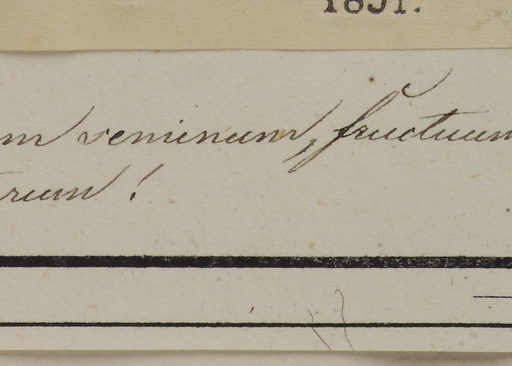 1851.
m seminum, fructuum
rum!